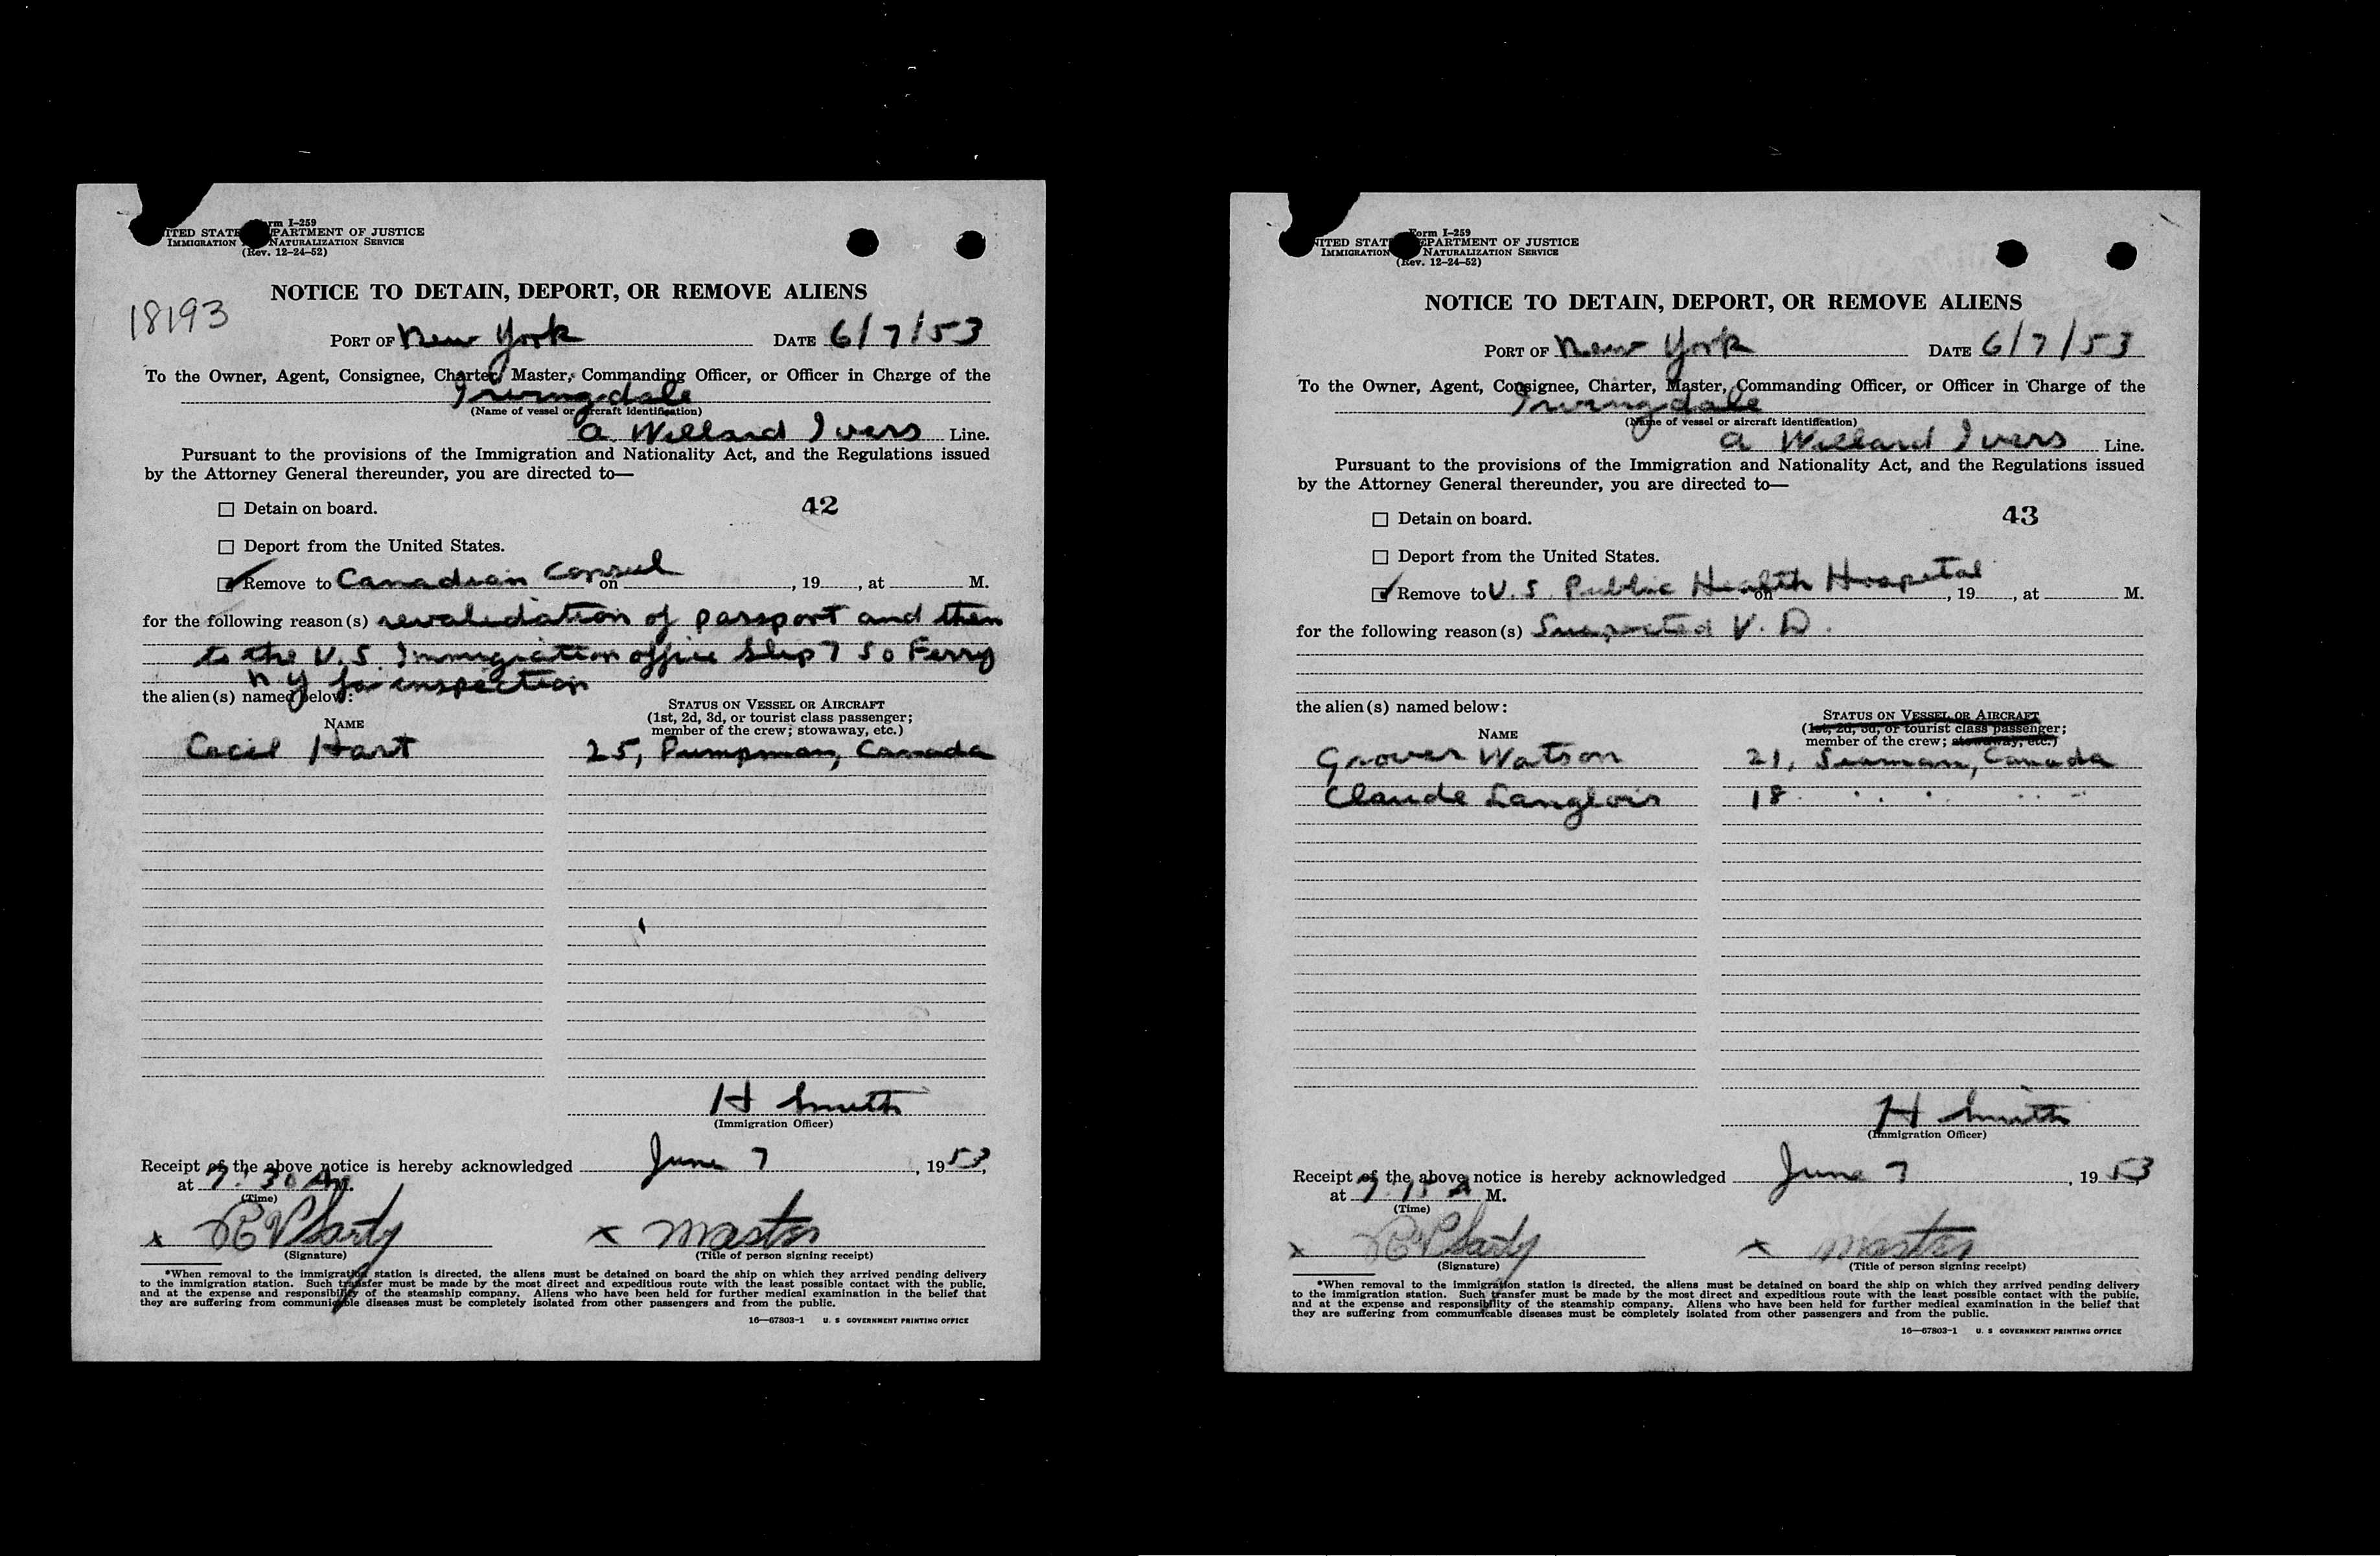 Form I-259
UNITED STATES DEPARTMENT OF JUSTICE
IMMIGRATION NATURALIZATION SERVICE
(Rev. 12-24-52)
NOTICE TO DETAIN, DEPORT, OR REMOVE ALIENS
18193
PORT OF New York DATE 6/7/53
To the Owner, Agent, Consignee, Charter, Master, Commanding Officer, or Officer in Charge of the
Irvingdale
(Name of vessel or aircraft identification)
A. Willard Ivers Line.
Pursuant to the provisions of the Immigration and Nationality Act, and the Regulations issued
by the Attorney General thereunder, you are directed to—
☐ Detain on board. 42
☐ Deport from the United States.
☑ Remove to Canadian Consul on , 19 , at M.
for the following reason(s) revalidation of passport and then
to the U.S. Immigration office Slip 7 So Ferry
N Y for inspection
the alien(s) named below:
NAME
STATUS ON VESSEL OR AIRCRAFT
(1st, 2d, 3d, or tourist class passenger;
member of the crew; stowaway, etc.)
Cecil Hart 25, Pumpman, Canada
H Smith
(Immigration Officer)
Receipt of the above notice is hereby acknowledged June 7, 1953,
at 9:30 A M.
(Time)
x x Master
(Signature) (Title of person signing receipt)
*When removal to the immigration station is directed, the aliens must be detained on board the ship on which they arrived pending delivery
to the immigration station. Such transfer must be made by the most direct and expeditious route with the least possible contact with the public,
and at the expense and responsibility of the steamship company. Aliens who have been held for further medical examination in the belief that
they are suffering from communicable diseases must be completely isolated from other passengers and from the public.
16—67803-1 U. S GOVERNMENT PRINTING OFFICE
Form I-259
UNITED STATES DEPARTMENT OF JUSTICE
IMMIGRATION NATURALIZATION SERVICE
(Rev. 12-24-52)
NOTICE TO DETAIN, DEPORT, OR REMOVE ALIENS
PORT OF New York DATE 6/7/53
To the Owner, Agent, Consignee, Charter, Master, Commanding Officer, or Officer in Charge of the
Irvingdale
(Name of vessel or aircraft identification)
A Willard Ivers Line.
Pursuant to the provisions of the Immigration and Nationality Act, and the Regulations issued
by the Attorney General thereunder, you are directed to—
☐ Detain on board. 43
☐ Deport from the United States.
☑ Remove to U.S. Public Health Hospital on , 19 , at M.
for the following reason(s) Suspected V. D.
the alien(s) named below:
NAME
STATUS ON VESSEL OR AIRCRAFT
(1st, 2d, 3d, or tourist class passenger;
member of the crew; stowaway, etc.)
Grover Watson 21, Seaman, Canada
Claude Langlois 18 " " "
H Smith
(Immigration Officer)
Receipt of the above notice is hereby acknowledged June 7, 1953
at 9:15 A M.
(Time)
x x Master
(Signature) (Title of person signing receipt)
*When removal to the immigration station is directed, the aliens must be detained on board the ship on which they arrived pending delivery
to the immigration station. Such transfer must be made by the most direct and expeditious route with the least possible contact with the public,
and at the expense and responsibility of the steamship company. Aliens who have been held for further medical examination in the belief that
they are suffering from communicable diseases must be completely isolated from other passengers and from the public.
16—67803-1 U. S GOVERNMENT PRINTING OFFICE